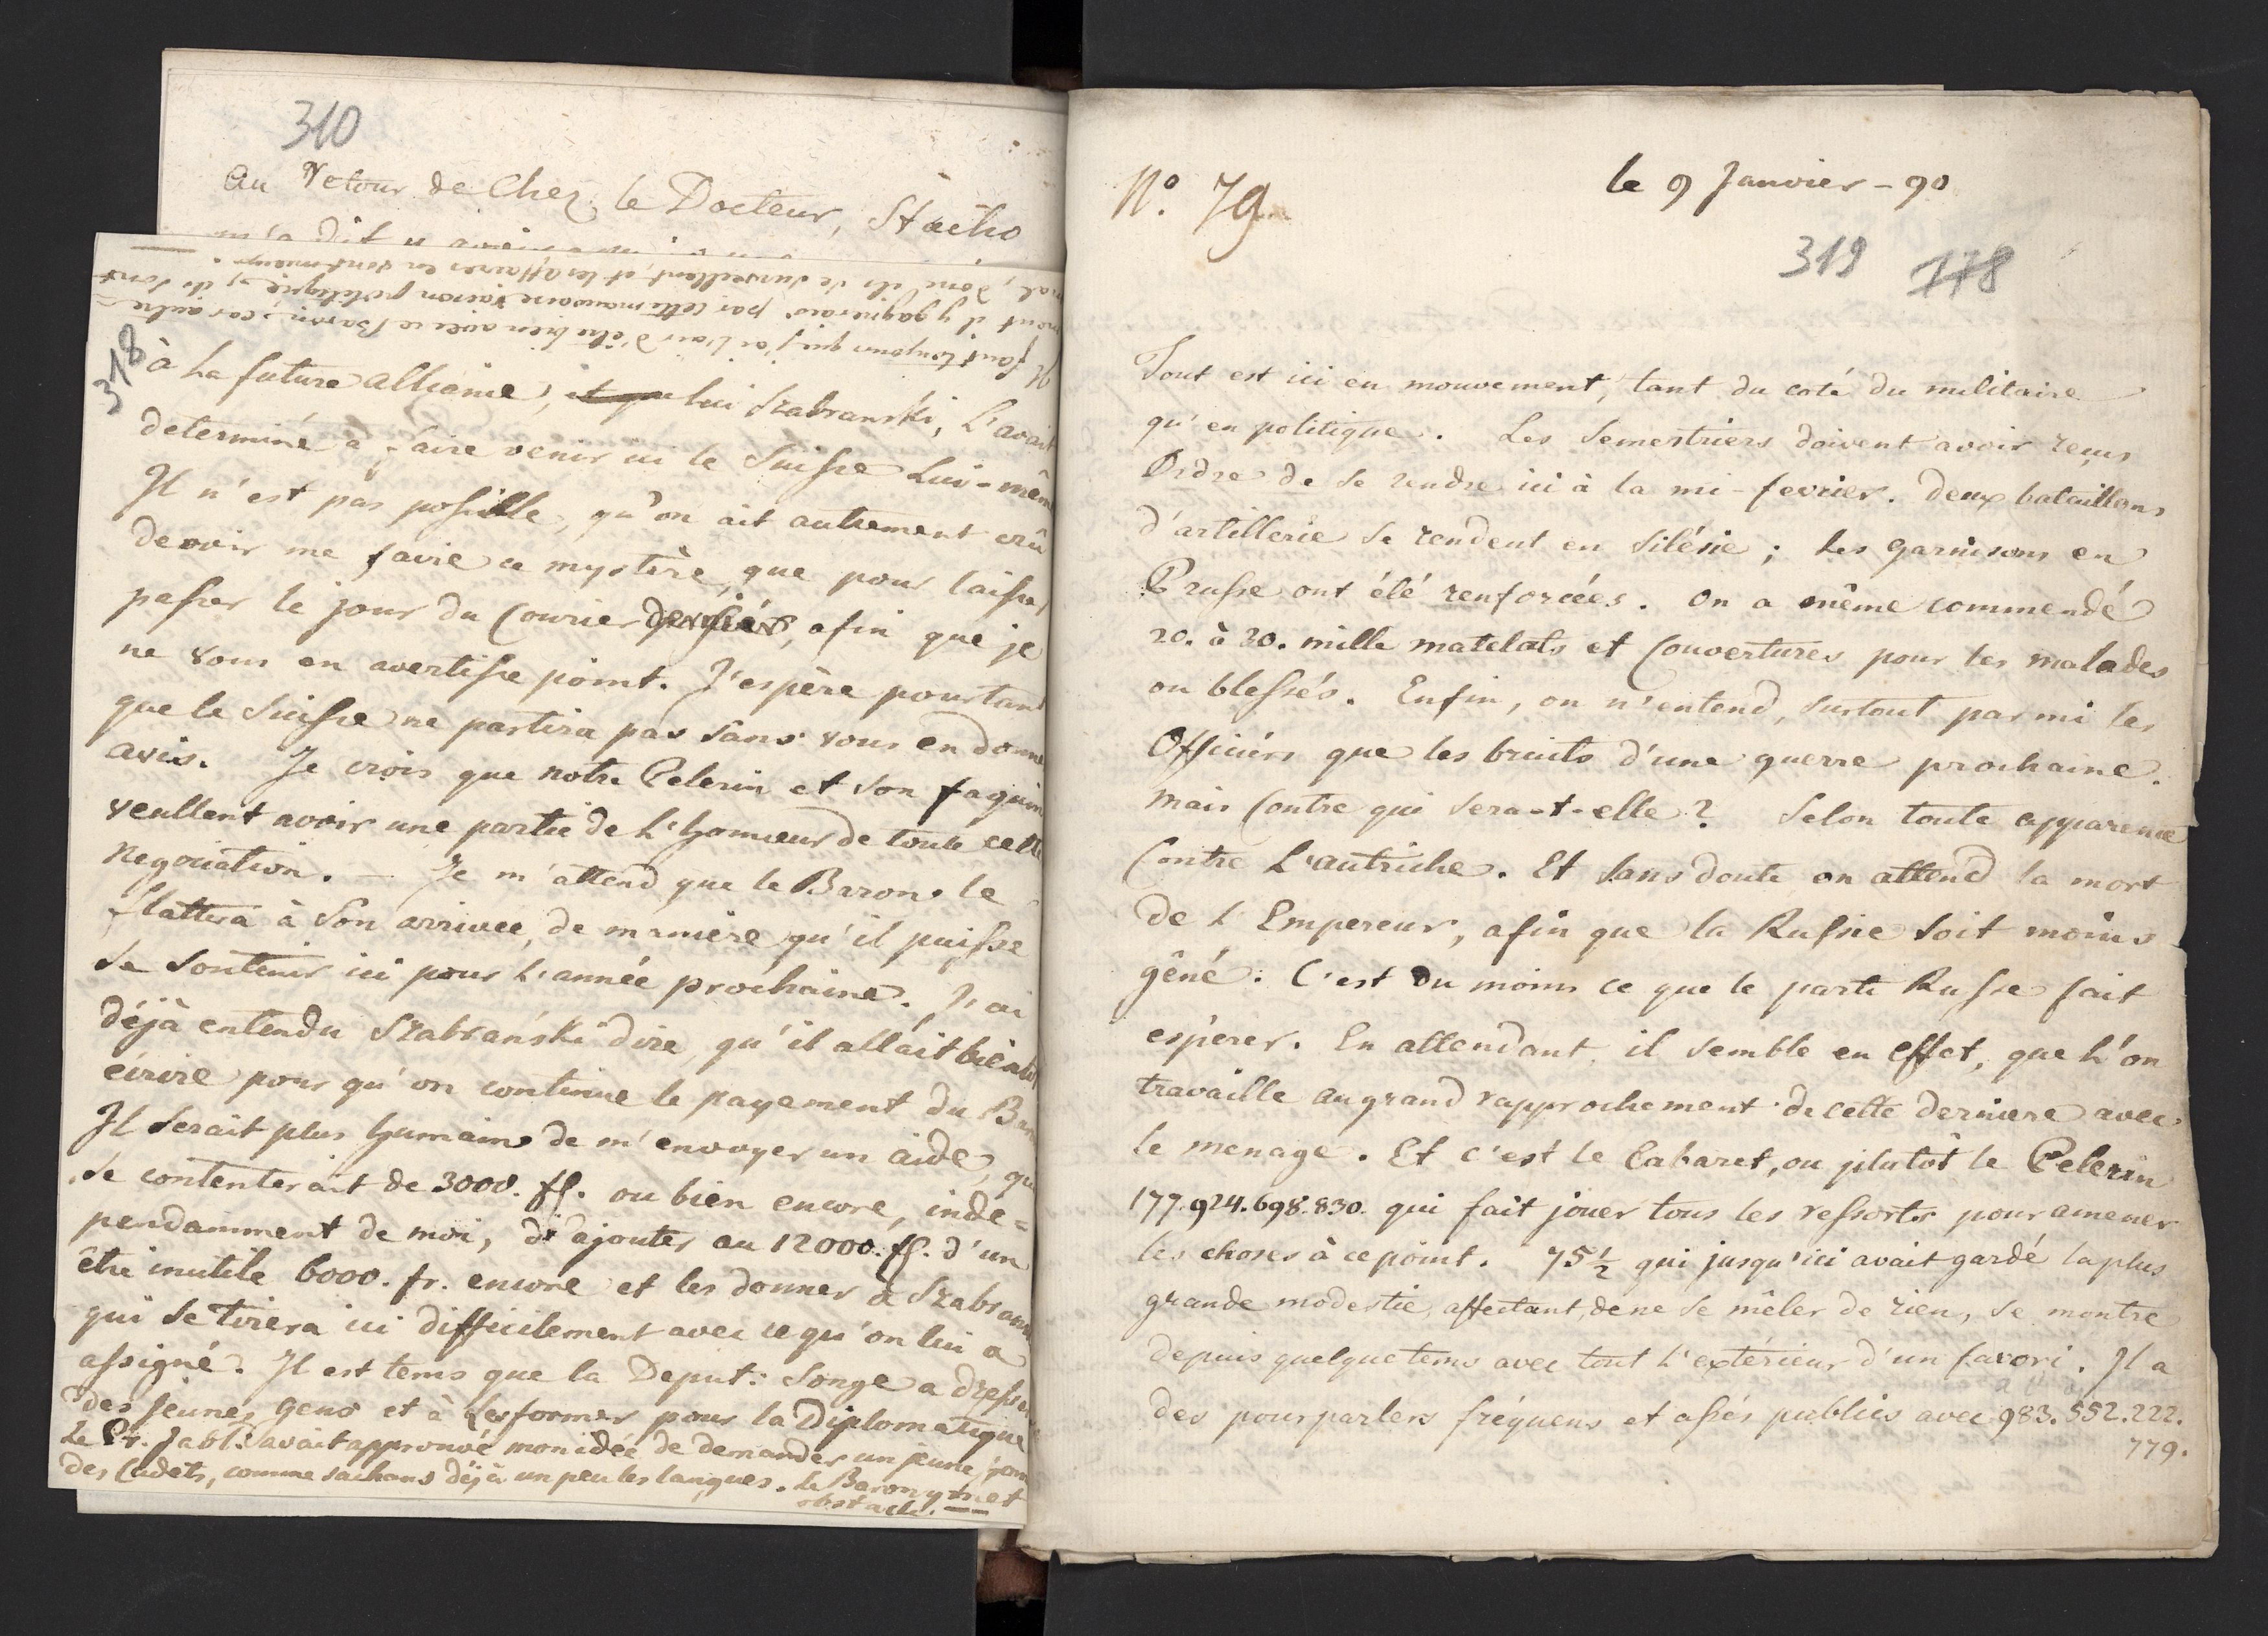 310
Au retour de Chez le Docteur, Stacho
m'a dit
Il faut toujours que j'aie l'air d'être bien avec ce Baron; car autre-
ment il y gagnerais par cette mauvaise raison
mal, dont ils se surveillent, et les affaires en vont mieux.
318
à la future alliance, et que lui Szabranski, L'avait
determiné à faire venir ici le Suisse Lui-même
Il n'est pas possible, qu'on ait autrement crû
devoir me faire ce mystère, que pour laisser
passer le jour du Courier dernier, afin que je
ne vous en avertisse point. J'espère pourtant
que le Suisse ne partira pas sans vous en donner
avis. Je crois que notre Pelerin et son faquin
veullent avoir une partie de L'honneur de toute cette
negociation. — Je m'attend que le Baron le
flattera à Son arrivée, de manière qu'il puisse
se soutenir ici pour L'année prochaine. J'ai
déjà entendu Szabranski dire, qu'il allait bientot
écrire pour qu'on continue le payement du Bar
Il serait plus humain de m'envoyer un aide, qui
se contenterait de 3000. ff. ou bien encore, inde=
pendamment de moi, d'ajouter au 12000. ff. d'un
être inutile 6000. fr. encore et les donner à Szabran
qui se tirera ici difficilement avec ce qu'on lui a
assigné. Il est tems que la Deput: songe a dresser
des jeunes gens et à Les former pour la Diplomatique
Le Pr. Jabl: avait approuvé mon idée de demander un jeune hom
des Cadets, comme sachans déjà un peu les langues. le Baron y met
obstacle. —
Nº. 79.
le 9 Janvier - 90
319 178
Tout est ici en mouvement, tant du coté du militaire
qu'en politique. Les Semestriers doivent avoir reçus
Ordre de se rendre ici à la mi-fevrier. deux bataillons
d'artillerie se rendent en Silésie; Les garnisons en
Prusse ont été renforcées. On a même commendé
20. à 30. mille matelats et Couvertures pour les malades
ou blessés. Enfin, on n'entend, surtout parmi les
Officiers que les bruits d'une guerre prochaine.
mais Contre qui sera-t-elle? Selon toute apparence
Contre L'autriche. Et sans doute on attend la mort
de L'Empereur, afin que la Russie soit moins
gêné. C'est du moins ce que le parti Russe fait
espérer. En attendant, il semble en effet, que L'on
travaille au grand rapprochement de cette derniere avec
le menage. Et c'est le Cabaret, ou plutôt le Pelerin
177.924.698.830. qui fait jouer tous les ressorts pour amener
les choses à ce point. 75½ qui jusqu'ici avait gardé la plus
grande modestie, affectant, de ne se mêler de rien, se montre
depuis quelque tems avec tout L'extérieur d'un favori. Il a
des pourparlers fréquens et assés publics avec 983.552.222.
779.